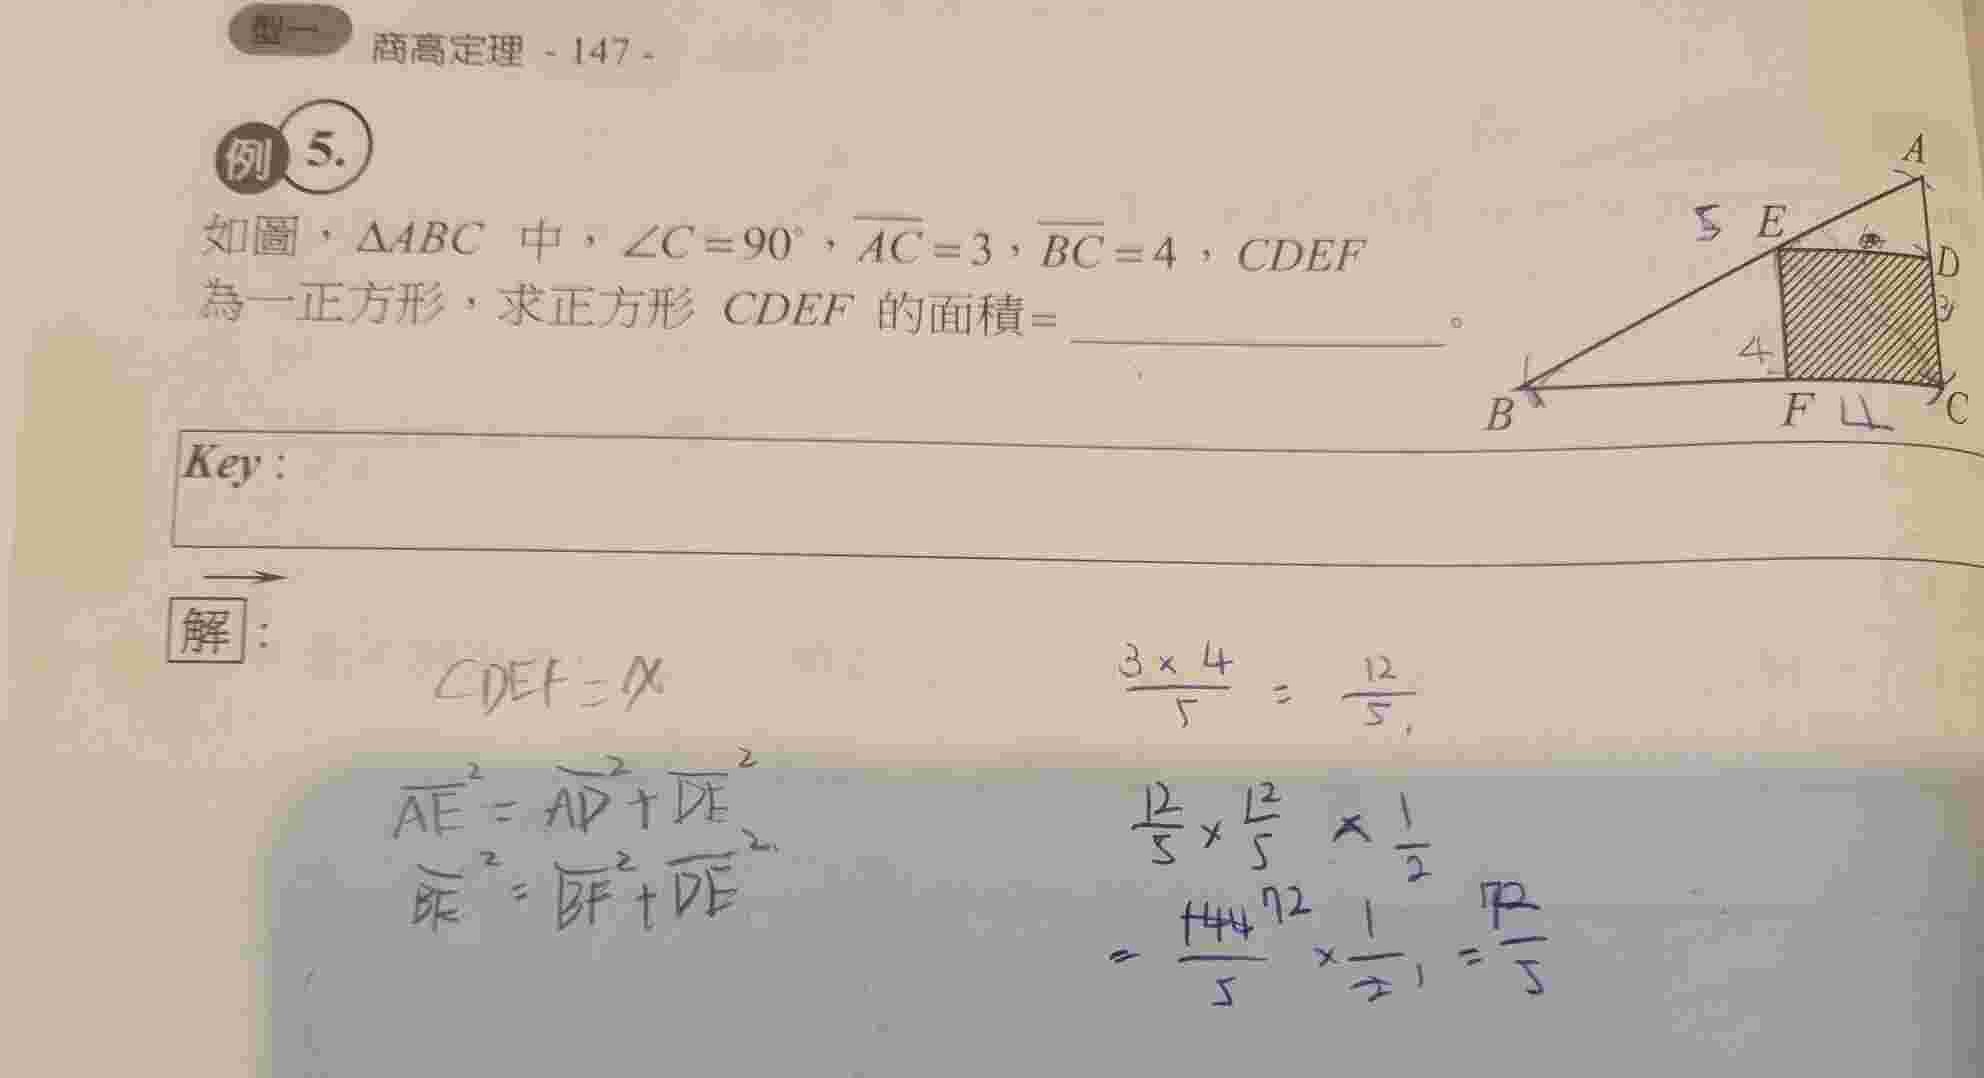 型一 商高定理 - 147 -
例 5.
如圖，ΔABC 中，∠C=90°，A̅C̅=3，B̅C̅=4，CDEF
為一正方形，求正方形 CDEF 的面積=＿＿＿＿＿＿。
A
5 E
D
3
4
B F 4 C
Key :
解 :
CDEF = x
3 × 4 / 5 = 12 / 5
A̅E̅² = A̅D̅² + D̅E̅²
B̅E̅² = B̅F̅² + D̅E̅²
12/5 × 12/5 × 1/2
= 144 72 / 5 × 1 / 2 1 = 72 / 5